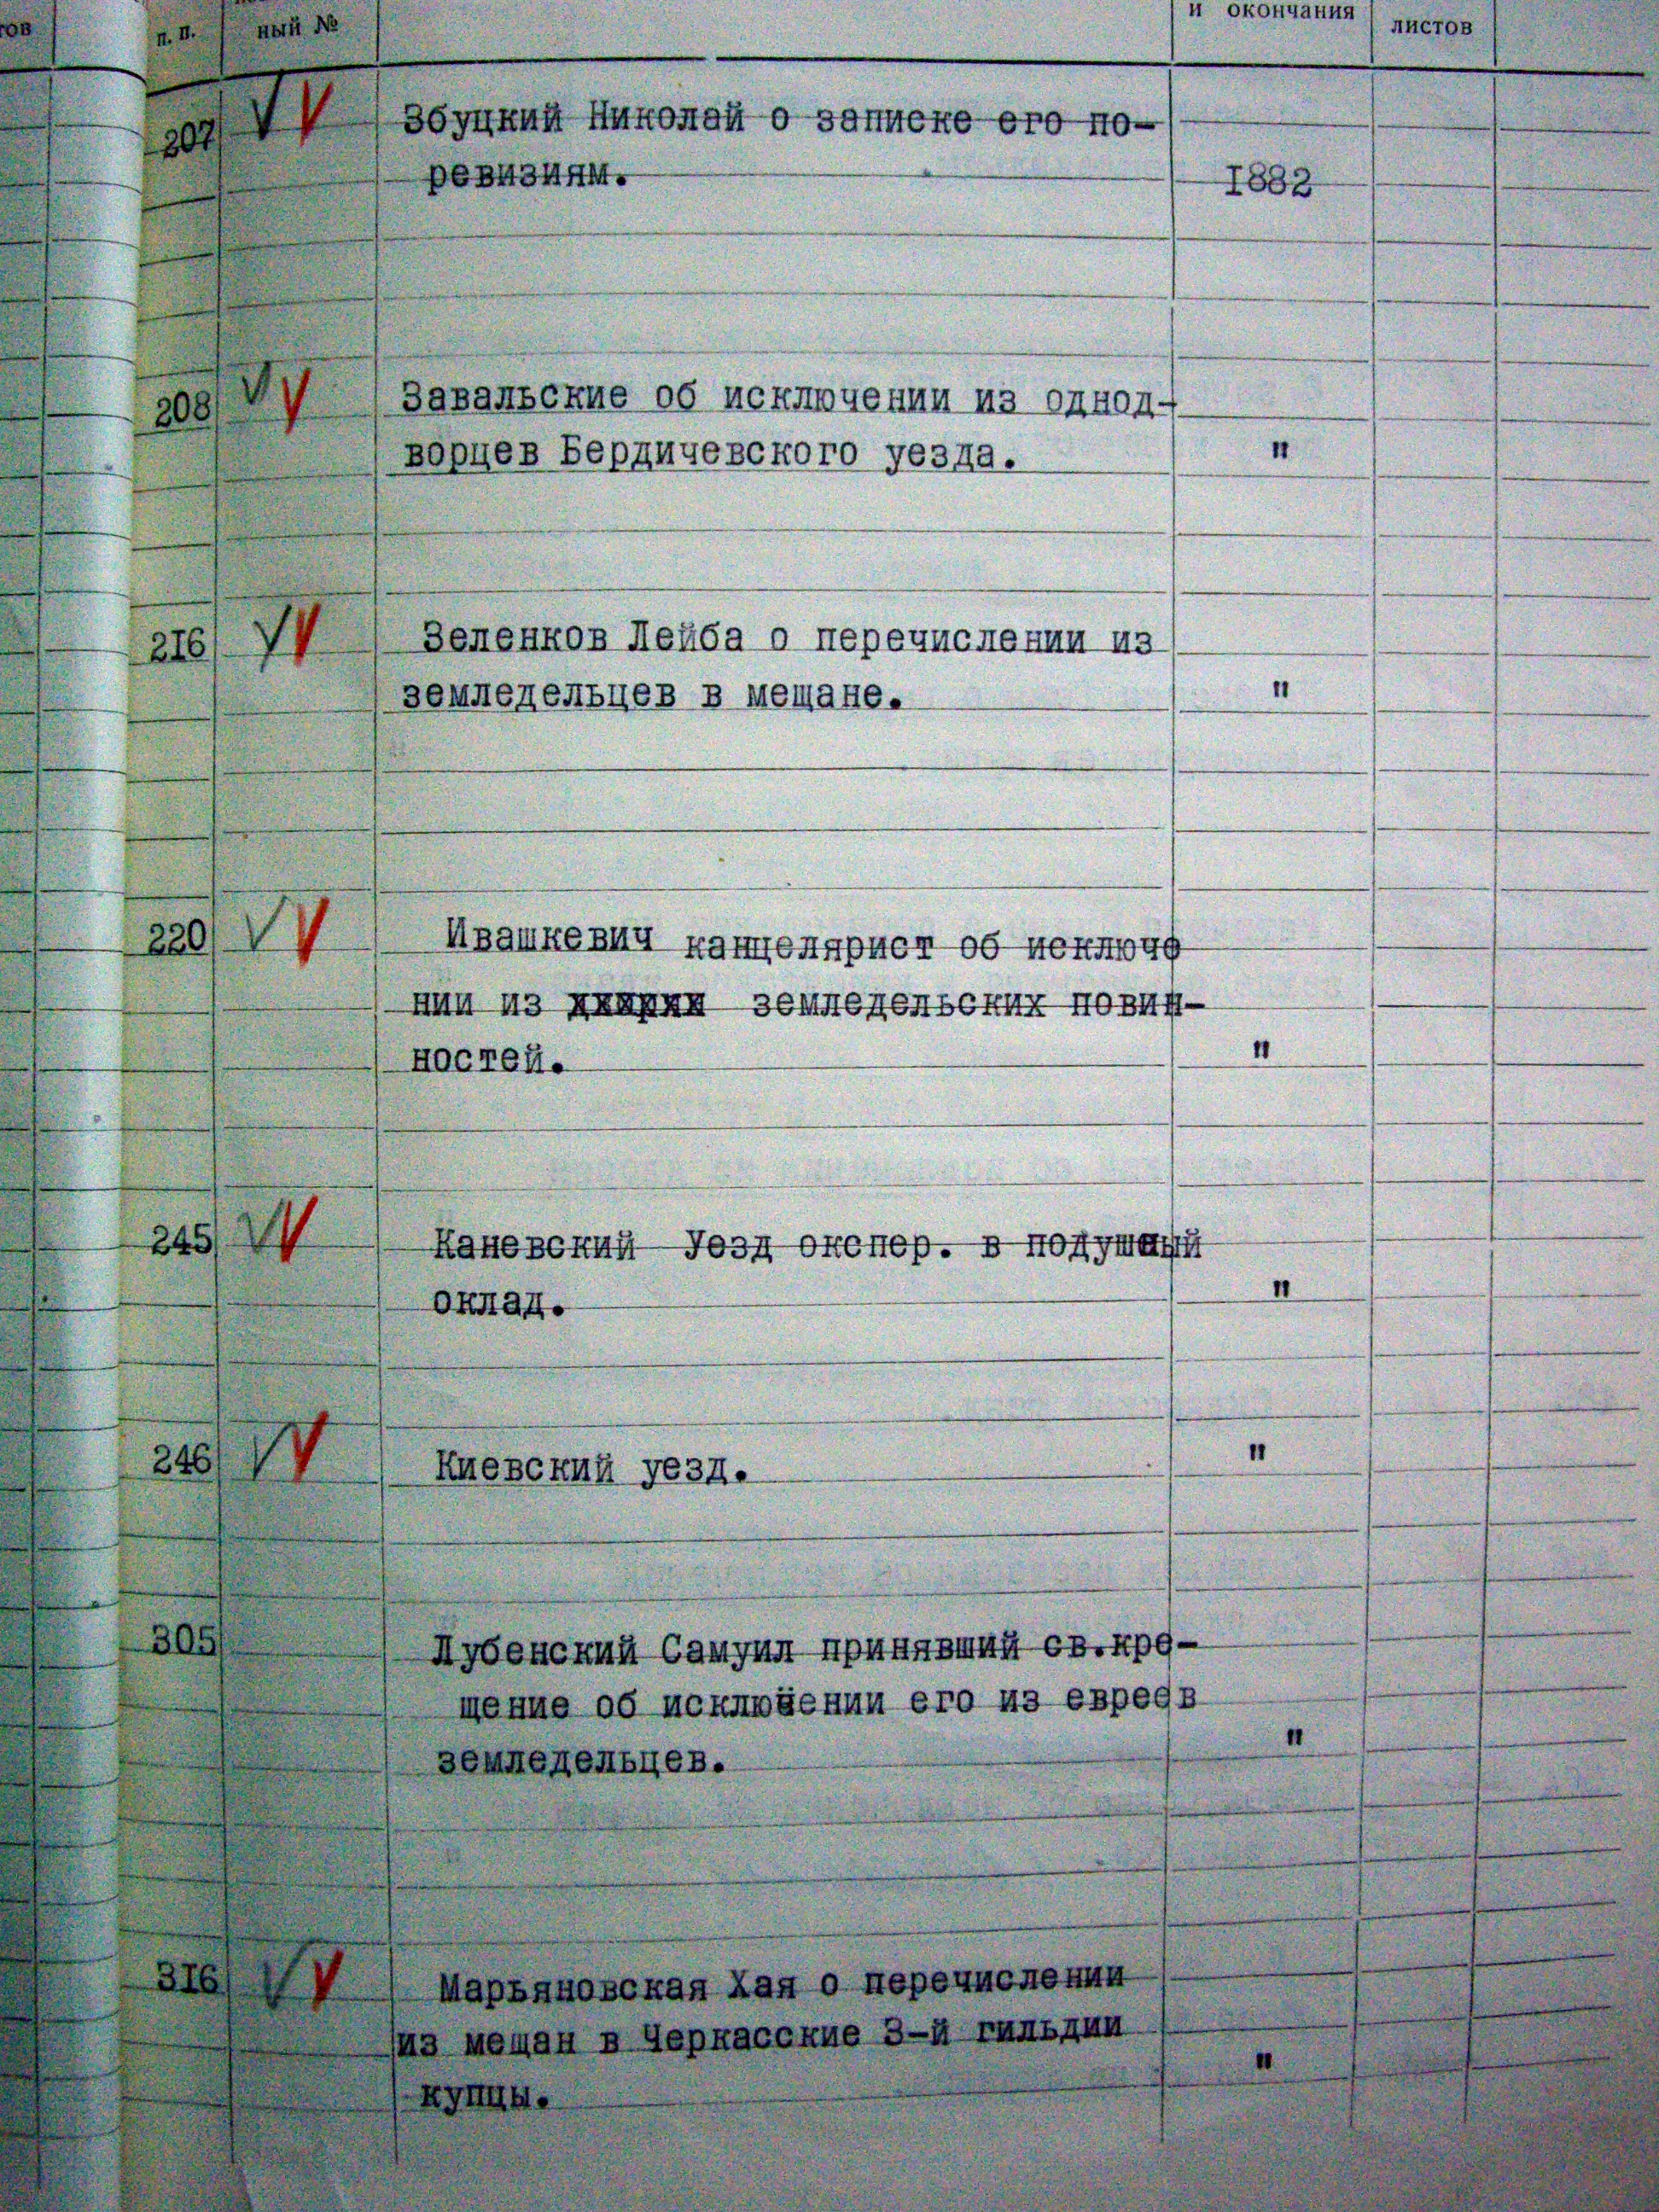 ов п. п. ный № и окончания листов
207 Збуцкий Николай о записке его по-
ревизиям. 1882
208 Завальские об исключении из однод-
ворцев Бердичевского уезда. "
216 Зеленков Лейба о перечислении из
земледельцев в мещане. "
220 Ивашкевич канцелярист об исключе
нии из земледельских повин-
ностей. "
245 Каневский Уезд окопер. в подушный
оклад. "
246 Киевский уезд. "
305 Лубенский Самуил принявший св.кре-
щение об исключении его из евреев
земледельцев. "
316 Марьяновская Хая о перечислении
из мещан в Черкасские 3-й гильдии
купцы. "